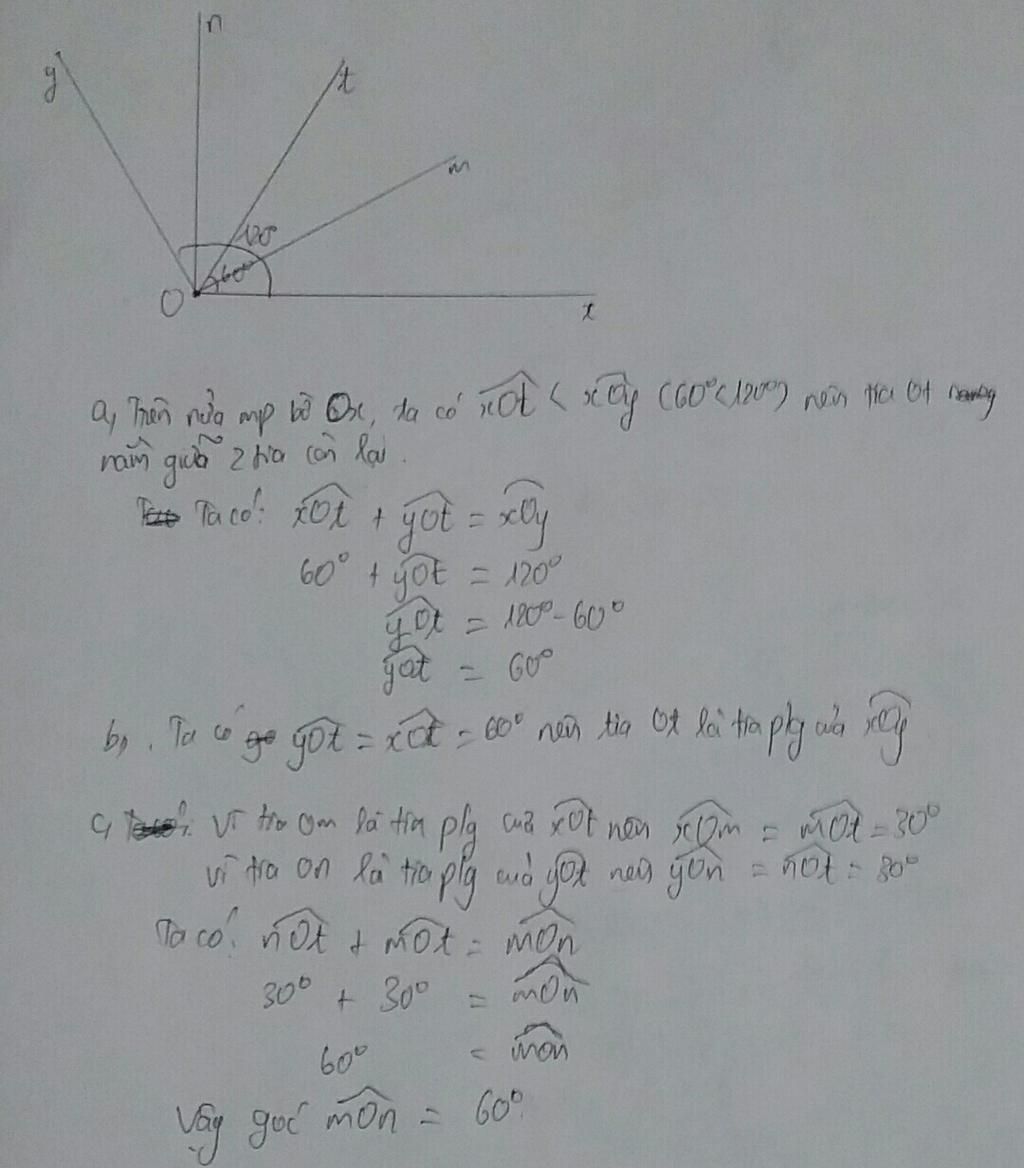 n
y
t
m
120°
60°
O
x
a, Trên nửa mp bờ Ox, ta có xOt < xOy (60°<120°) nên tia Ot
nằm giữa 2 tia còn lại.
Ta có: xOt + yOt = xOy
60° + yOt = 120°
yOt = 120° - 60°
yOt = 60°
b, Ta có yOt = xOt = 60° nên tia Ot là tia p/g của xOy
c, Vì tia Om là tia p/g của xOt nên xOm = mOt = 30°
Vì tia On là tia p/g của yOt nên yOn = nOt = 30°
Ta có: nOt + mOt = mOn
30° + 30° = mOn
60° = mOn
Vậy góc mOn = 60°.